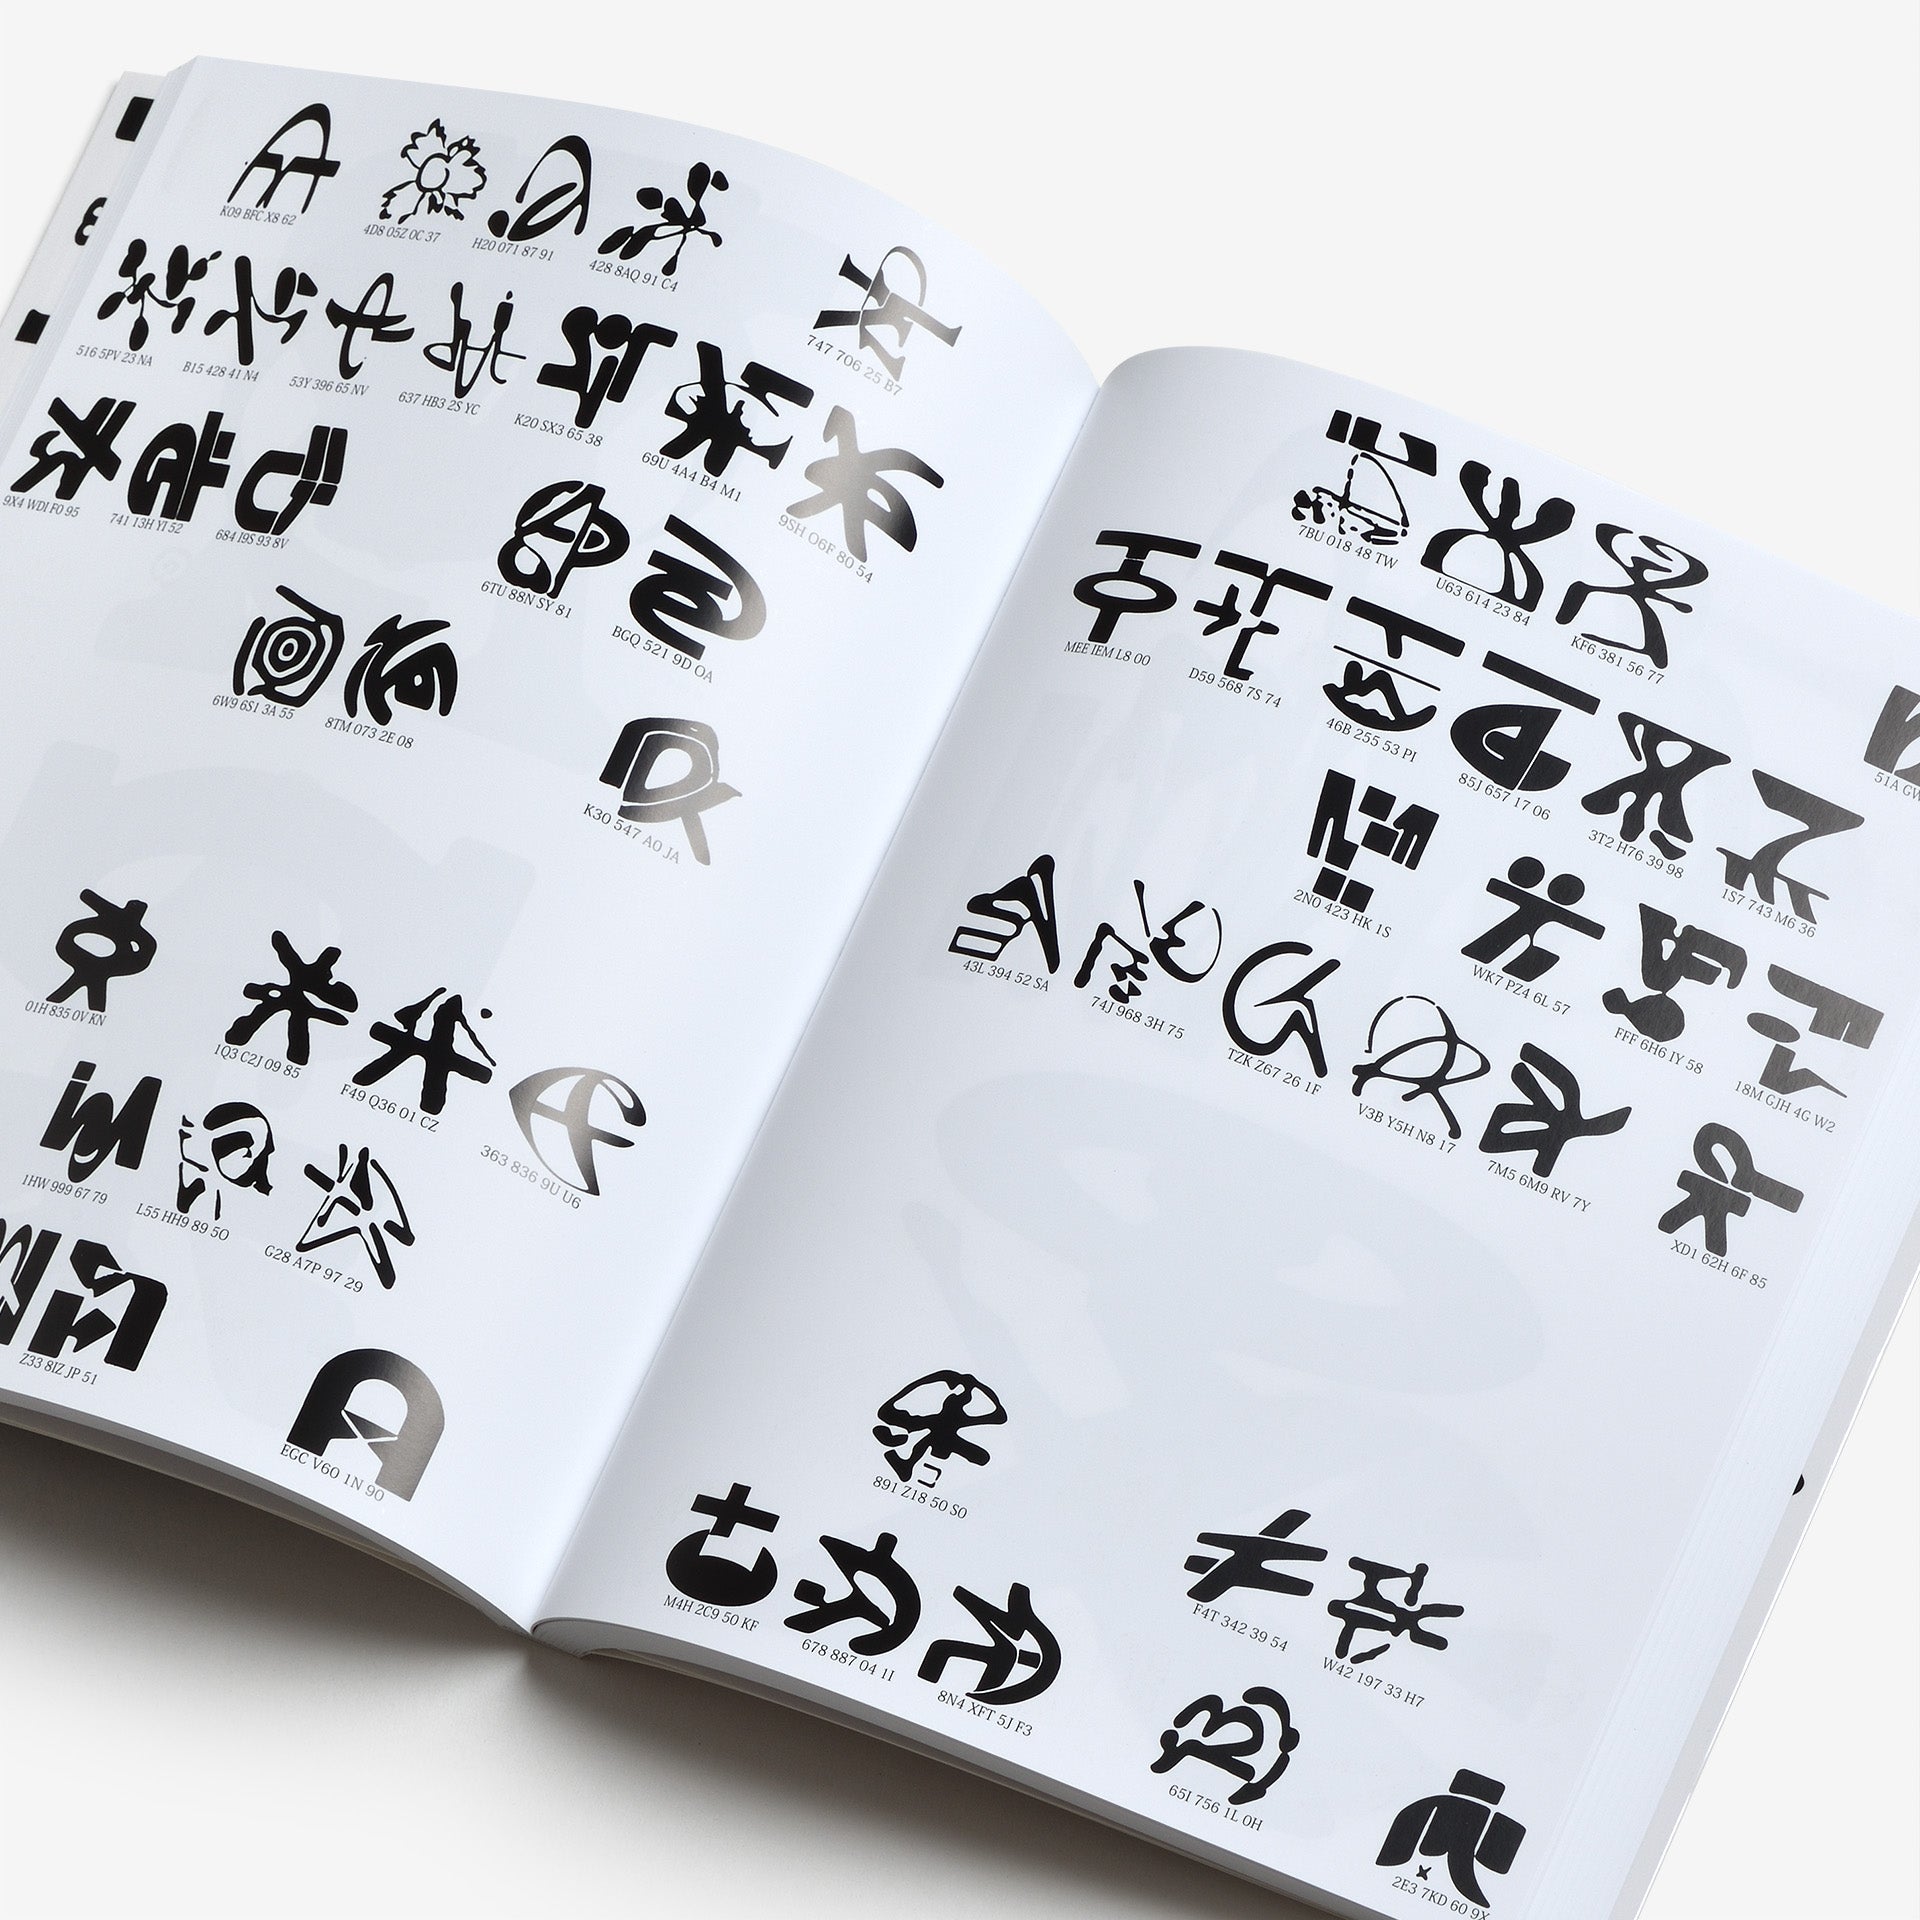 K09 BFC X8 62
4D8 05Z 0C 37
H20 071 87 91
428 8AQ 91 C4
747 706 25 B7
516 5PV 23 NA
B15 428 41 N4
53Y 396 65 NV
637 HB3 2S YC
K20 SX3 65 38
69U 4A4 B4 M1
9SH O6F 80 54
9X4 WDI F0 95
741 13H YI 52
684 I9S 93 8V
6TU 88N SY 81
BGQ 521 9D OA
6W9 6S1 3A 55
8TM 073 2E 08
K30 547 A0 JA
01H 835 0V KN
1Q3 C2J 09 85
F49 Q36 01 CZ
363 836 9U U6
1HW 999 67 79
L55 HH9 89 5O
G28 A7P 97 29
Z33 8IZ JP 51
EGC V60 1N 90
7BU 018 48 TW
U63 614 23 84
KF6 381 56 77
MEE IEM L8 00
D59 568 7S 74
46B 255 53 PI
85J 657 17 06
3T2 H76 39 98
1S7 743 M6 36
51A GW
2N0 423 HK 1S
WK7 PZ4 6L 57
FFF 6H6 IY 58
18M GJH 4G W2
43L 394 52 SA
74J 968 3H 75
TZK Z67 26 1F
V3B Y5H N8 17
7M5 6M9 RV 7Y
XD1 62H 6F 85
891 Z18 50 S0
M4H 2C9 50 KF
678 887 04 1I
8N4 XFT 5J F3
F4T 342 39 54
W42 197 33 H7
65I 756 1L 0H
2E3 7KD 60 9X